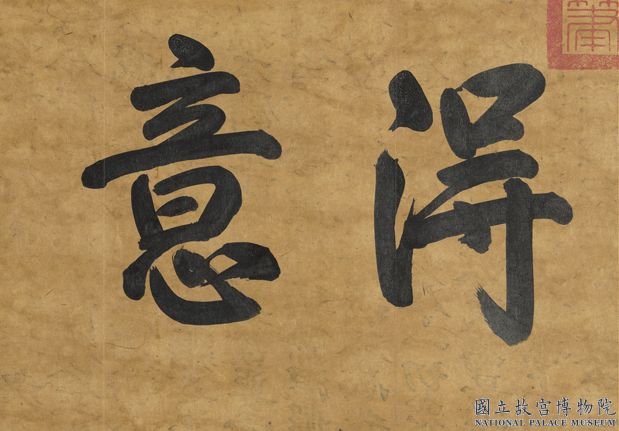 得意
國立故宮博物院
NATIONAL PALACE MUSEUM